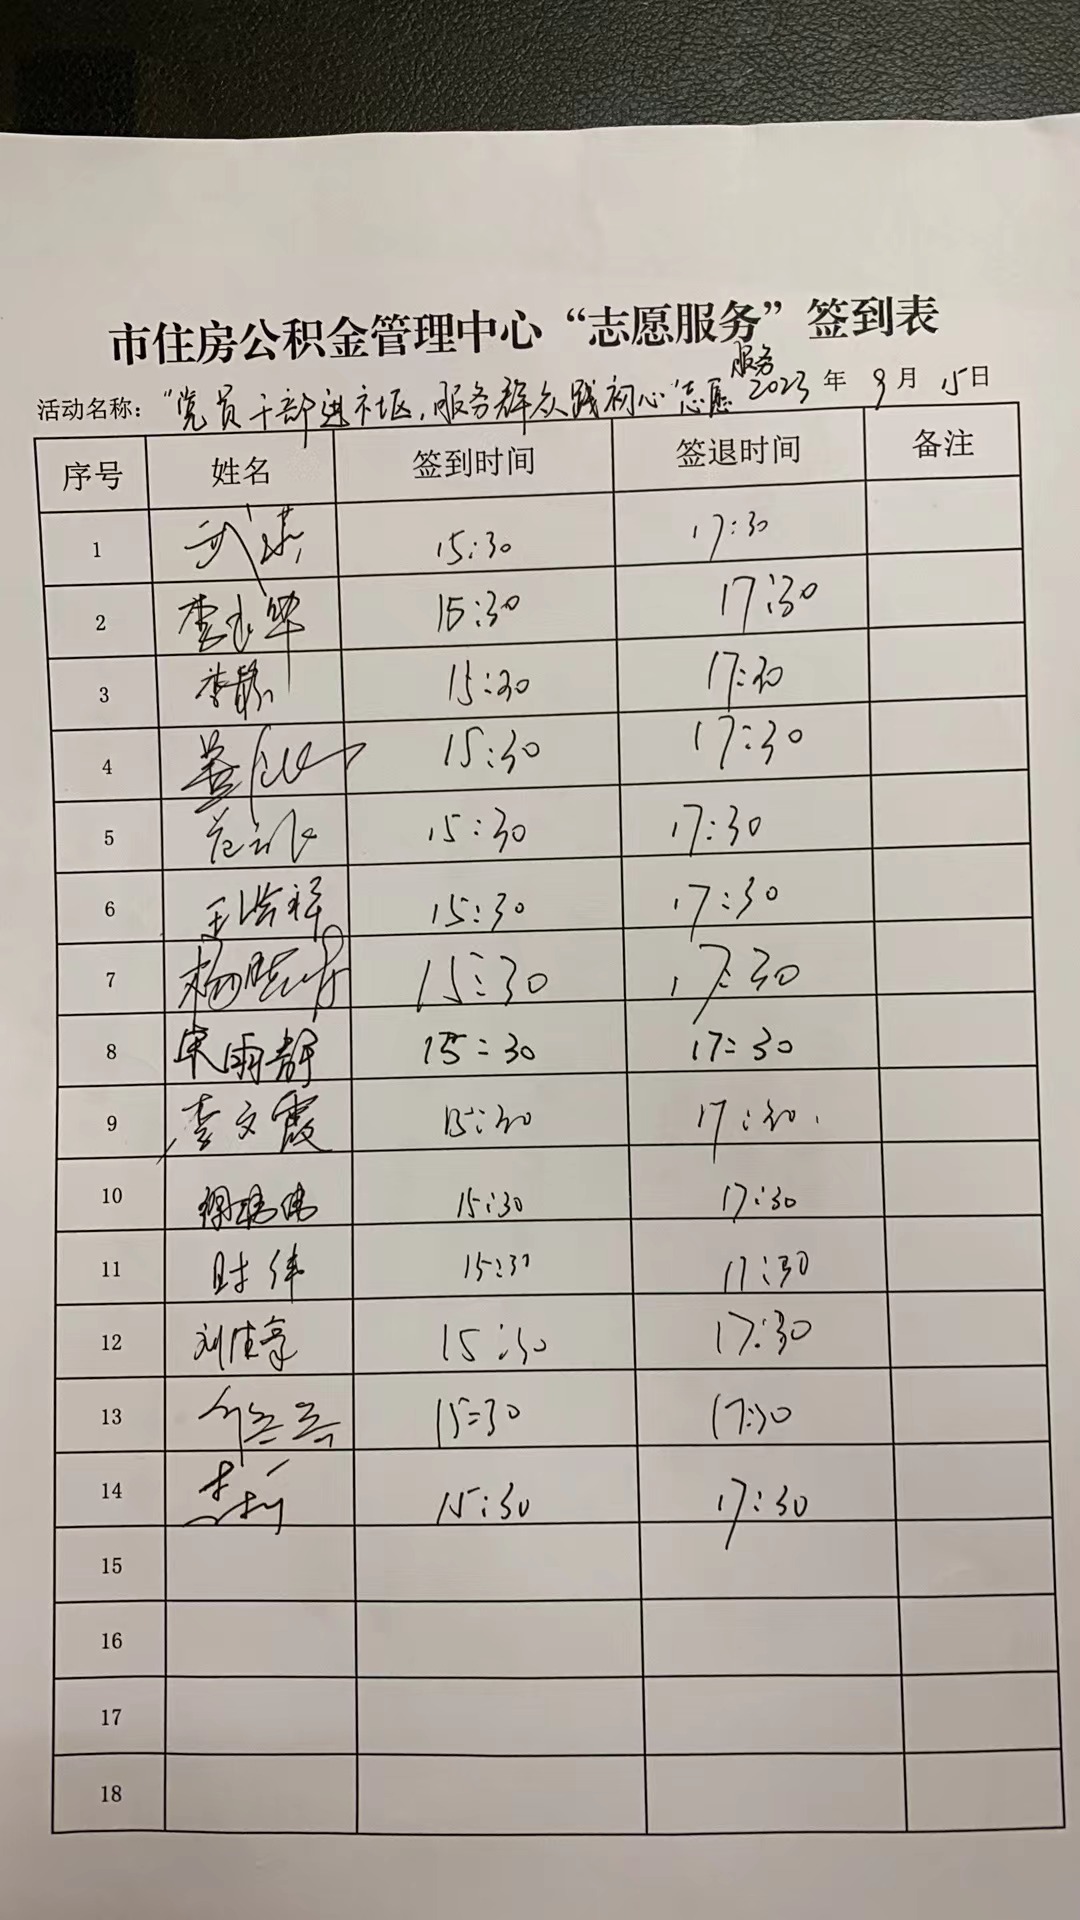 市住房公积金管理中心“志愿服务”签到表
服务
活动名称：“党员干部进社区，服务群众践初心”志愿 2023 年 9 月 15 日
序号 姓名 签到时间 签退时间 备注
1 武 15:30 17:30
2 李 华 15:30 17:30
3 李静 15:30 17:30
4 15:30 17:30
5 15:30 17:30
6 王 祥 15:30 17:30
7 杨 15:30 17:30
8 宋雨静 15=30 17=30
9 李文霞 15:30 17:30.
10 15:30 17:30
11 时伟 15:30 17:30
12 刘佳 15:30 17:30
13 15=30 17:30
14 15:30 17:30
15
16
17
18